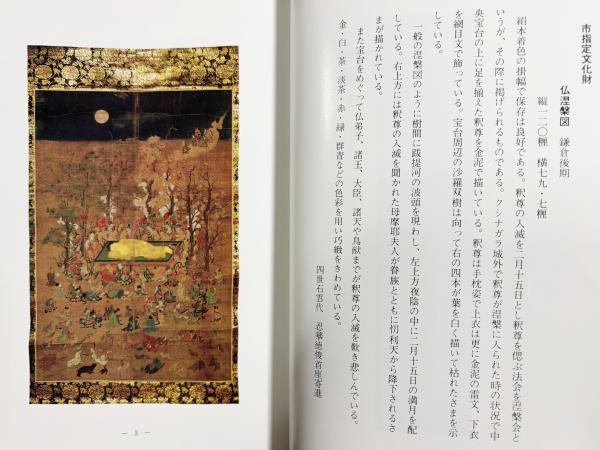 市指定文化財
仏涅槃図　鎌倉後期
縦一二〇糎　横七九・七糎
絹本着色の掛幅で保存は良好である。釈尊の入滅を二月十五日とし釈尊を偲ぶ法会を涅槃会と
いうが、その際に掲げられるものである。クシナガラ城外で釈尊が涅槃に入られた時の状況で中
央宝台の上に足を揃えた釈尊を金泥で描いている。釈尊は手枕姿で上衣は更に金泥の雷文、下衣
を網目文で飾っている。宝台周辺の沙羅双樹は向って右の四本が葉を白く描いて枯れたさまを示
している。
一般の涅槃図のように樹間に跋提河の波頭を現わし、左上方夜陰の中に二月十五日の満月を配
している。右上方には釈尊の入滅を聞かれた母摩耶夫人が眷族とともに忉利天から降下されるさ
まが描かれている。
また宝台をめぐって仏弟子、諸王、大臣、諸天や鳥獣までが釈尊の入滅を歎き悲しんでいる。
金・白・茶・淡茶・赤・緑・群青などの色彩を用い巧緻をきわめている。
四世石雲代　忍華徳俊首座寄進
— 3 —